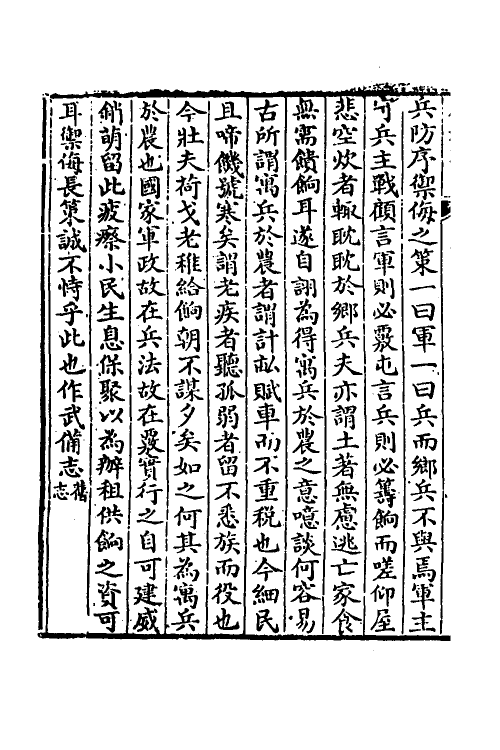 兵防序禦侮之策一曰軍一曰兵而鄉兵不與焉軍主
守兵主戰顧言軍則必覈屯言兵則必籌餉而嗟仰屋
悲空炊者輒眈眈於鄉兵夫亦謂土著無慮逃亡家食
無需饋餉耳遂自詡為得寓兵於農之意噫談何容易
古所謂寓兵於農者謂計畝賦車而不重稅也今細民
且啼饑號寒矣謂老疾者聽孤弱者留不悉族而役也
今壯夫荷戈老稚給餉朝不謀夕矣如之何其為寓兵
於農也國家軍政故在兵法故在覈實行之自可建威
銷萌留此疲瘵小民生息保聚以為辦租供餉之資可
耳禦侮長策誠不恃乎此也作武備志舊志